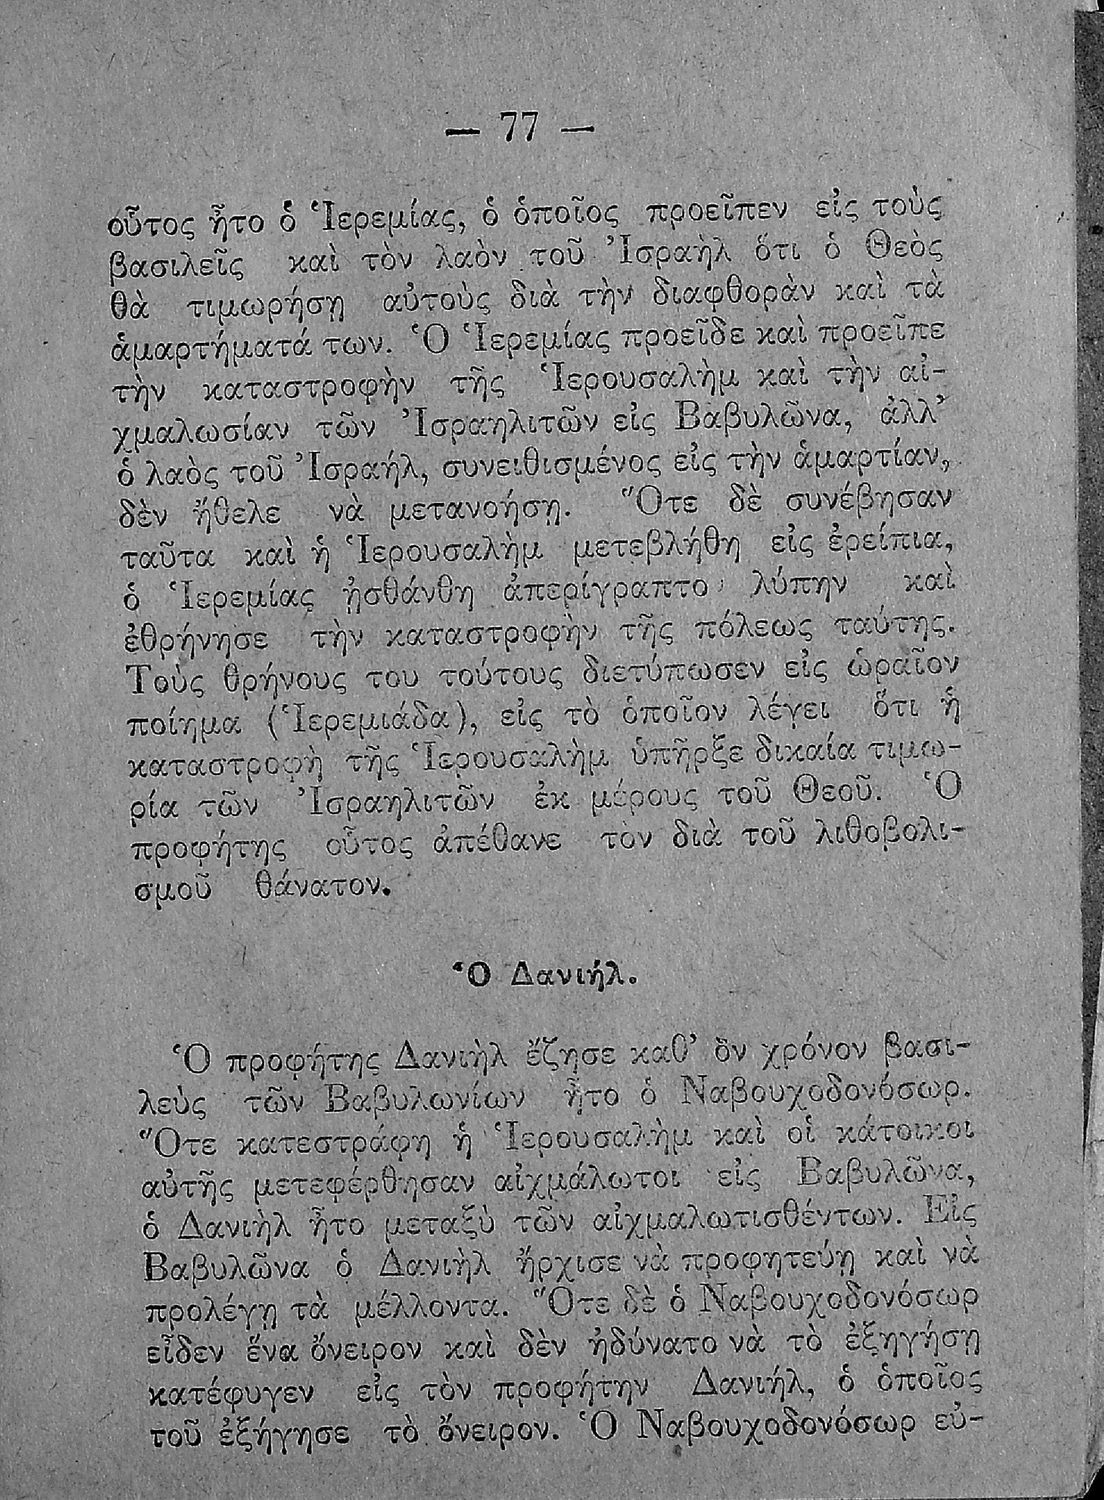 — 77 —
οὗτος ἦτο ὁ Ἱερεμίας, ὁ ὁποῖος προεῖπεν εἰς τοὺς
βασιλεῖς καὶ τὸν λαὸν τοῦ Ἰσραὴλ ὅτι ὁ Θεὸς
θὰ τιμωρήσῃ αὐτοὺς διὰ τὴν διαφθορὰν καὶ τὰ
ἁμαρτήματά των. Ὁ Ἱερεμίας προεῖδε καὶ προεῖπε
τὴν καταστροφὴν τῆς Ἱερουσαλὴμ καὶ τὴν αἰ-
χμαλωσίαν τῶν Ἰσραηλιτῶν εἰς Βαβυλῶνα, ἀλλ’
ὁ λαὸς τοῦ Ἰσραήλ, συνειθισμένος εἰς τὴν ἁμαρτίαν,
δὲν ἤθελε νὰ μετανοήσῃ. Ὅτε δὲ συνέβησαν
ταῦτα καὶ ἡ Ἱερουσαλὴμ μετεβλήθη εἰς ἐρείπια,
ὁ Ἱερεμίας ᾐσθάνθη ἀπερίγραπτον λύπην καὶ
ἐθρήνησε τὴν καταστροφὴν τῆς πόλεως ταύτης.
Τοὺς θρήνους του τούτους διετύπωσεν εἰς ὡραῖον
ποίημα (Ἱερεμιάδα), εἰς τὸ ὁποῖον λέγει ὅτι ἡ
καταστροφὴ τῆς Ἱερουσαλὴμ ὑπῆρξε δικαία τιμω-
ρία τῶν Ἰσραηλιτῶν ἐκ μέρους τοῦ Θεοῦ. Ὁ
προφήτης οὗτος ἀπέθανε τὸν διὰ τοῦ λιθοβολι-
σμοῦ θάνατον.
Ὁ Δανιήλ.
Ὁ προφήτης Δανιὴλ ἔζησε καθ’ ὃν χρόνον βασι-
λεὺς τῶν Βαβυλωνίων ἦτο ὁ Ναβουχοδονόσωρ.
Ὅτε κατεστράφη ἡ Ἱερουσαλὴμ καὶ οἱ κάτοικοι
αὐτῆς μετεφέρθησαν αἰχμάλωτοι εἰς Βαβυλῶνα,
ὁ Δανιὴλ ἦτο μεταξὺ τῶν αἰχμαλωτισθέντων. Εἰς
Βαβυλῶνα ὁ Δανιὴλ ἤρχισε νὰ προφητεύῃ καὶ νὰ
προλέγῃ τὰ μέλλοντα. Ὅτε δὲ ὁ Ναβουχοδονόσωρ
εἶδεν ἕνα ὄνειρον καὶ δὲν ἠδύνατο νὰ τὸ ἐξηγήσῃ
κατέφυγεν εἰς τὸν προφήτην Δανιήλ, ὁ ὁποῖος
τοῦ ἐξήγησε τὸ ὄνειρον. Ὁ Ναβουχοδονόσωρ εὐ-